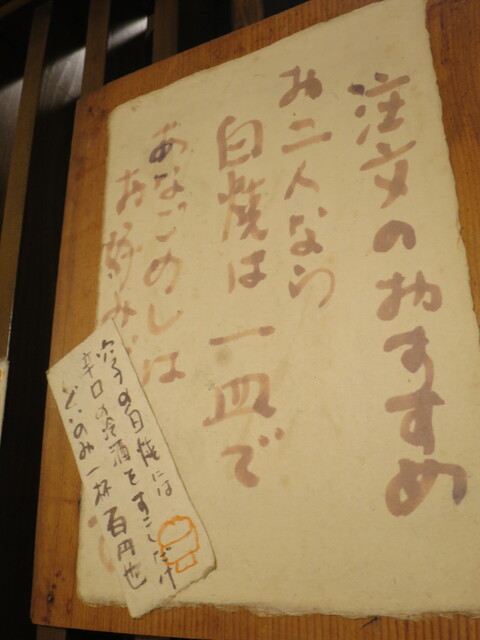 注文のおすすめ
お二人なら
白焼は一皿で
あなごめしは
お好みで
穴子の白焼には
辛口の冷酒をすこしだけ
ぐいのみ一杯 百円也